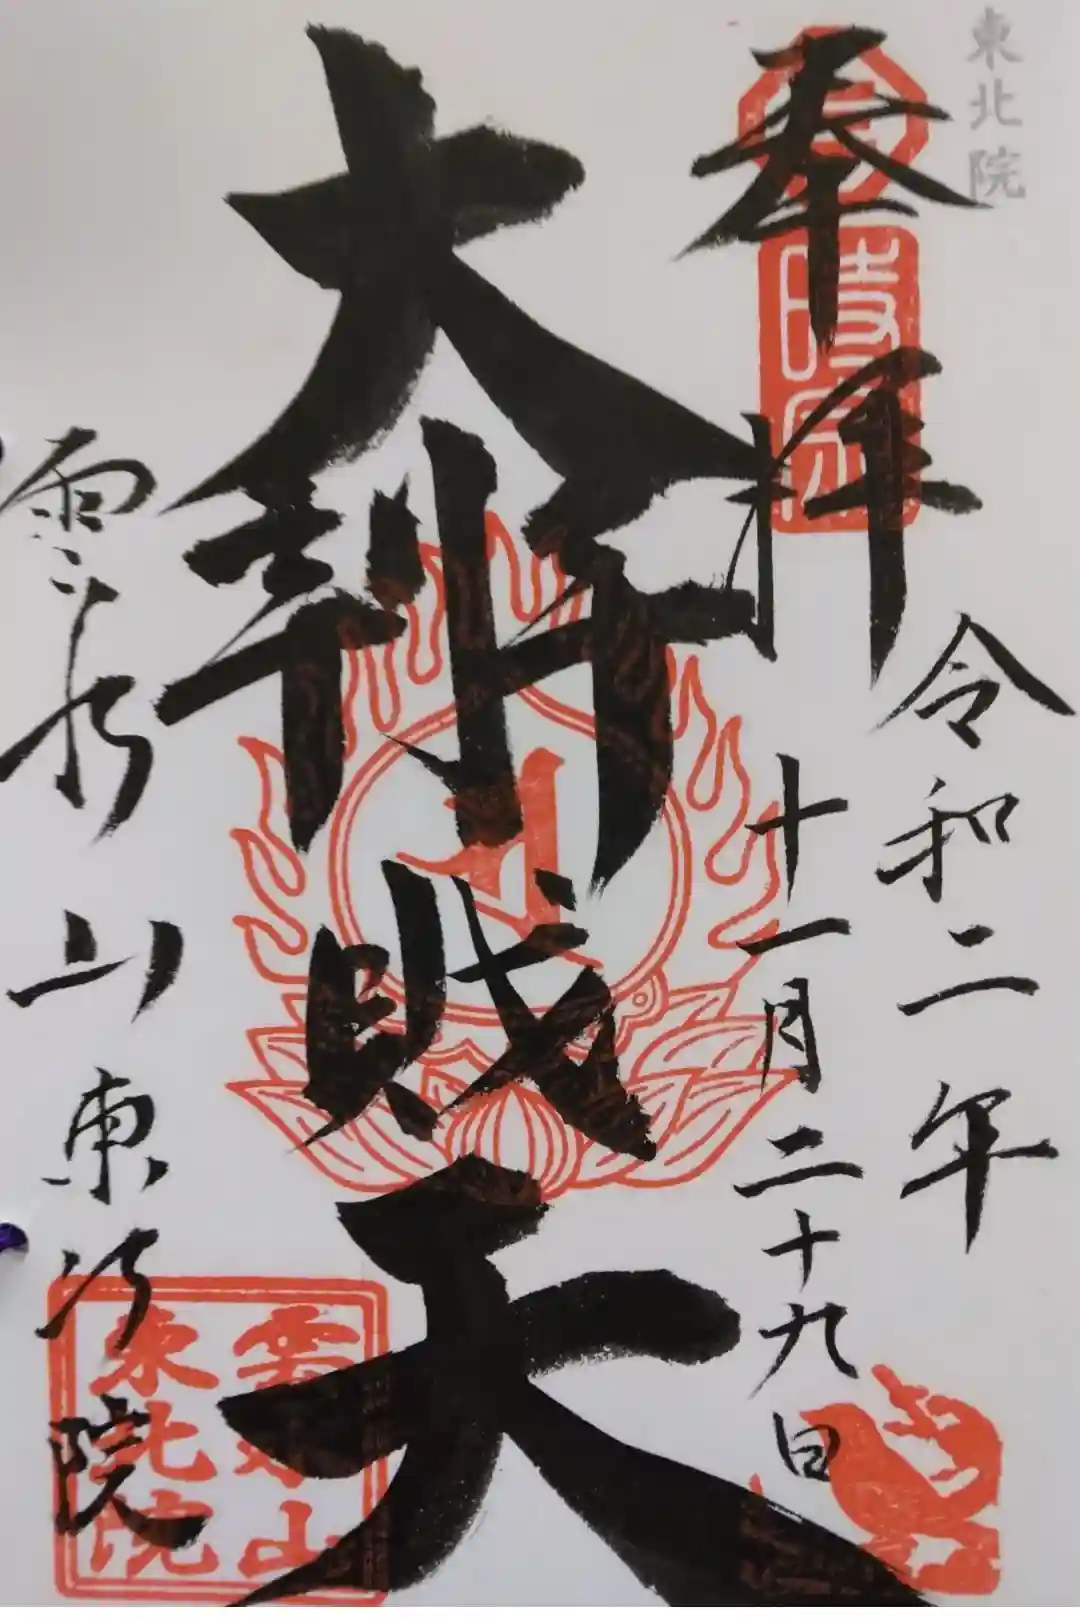 東北院
奉拝
令和二年
十一月二十九日
大弁財天
雲水山東北院
時宗
雲水山
東北院